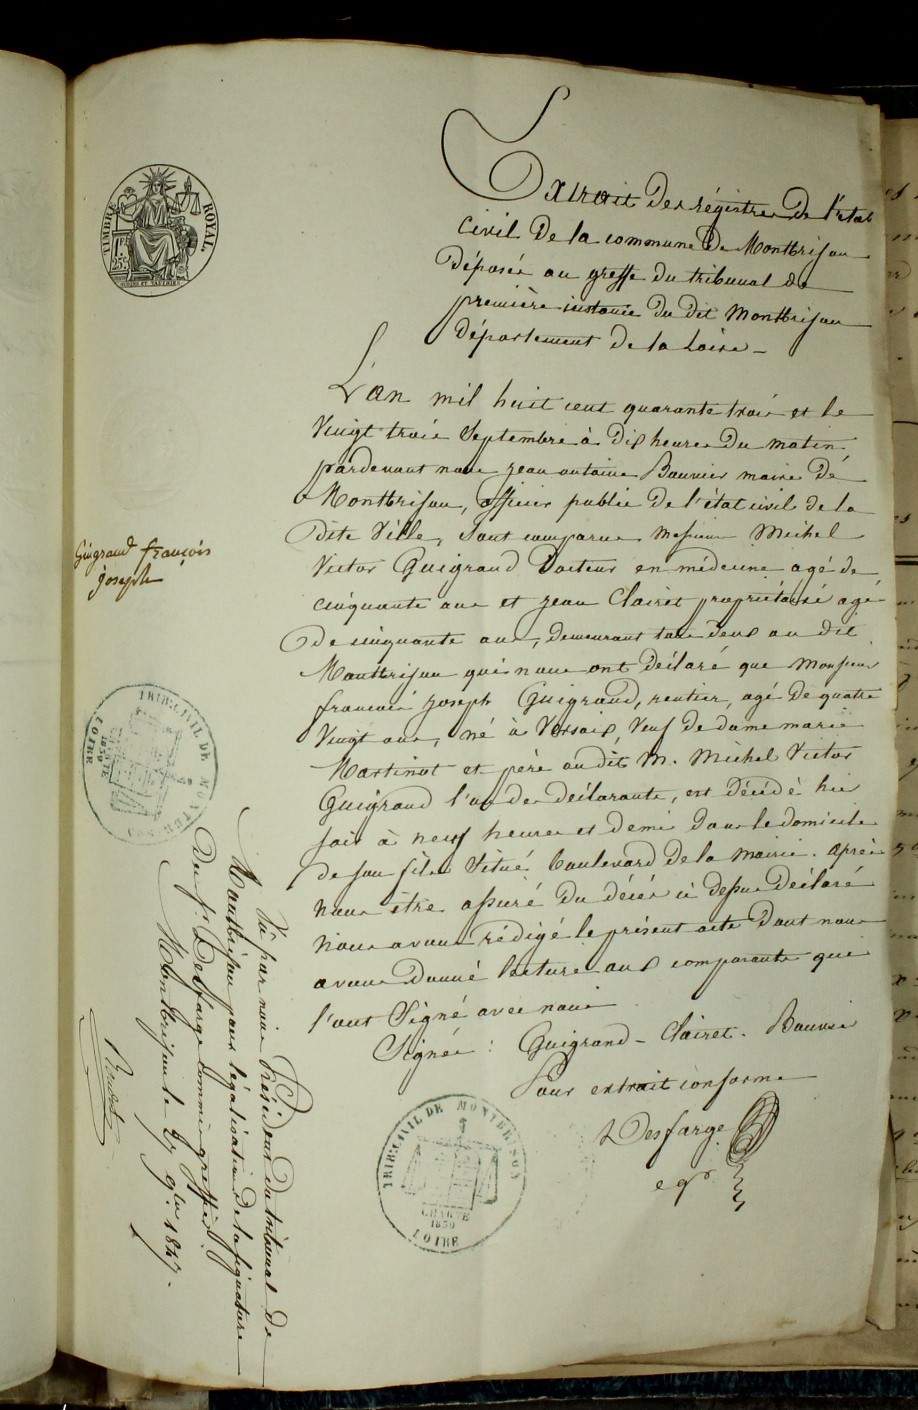 TIMBRE ROYAL
Extrait des régistres de l'état
civil de la commune de Montbrison
déposés au greffe du tribunal de
première instance du dit Montbrison
département de la Loire –
L'an mil huit cent quarante trois et le
vingt trois Septembre à dix heures du matin
pardevant nous jean antoine Bouvier maire de
Montbrison, officier public de l'état civil de la
dite Ville, sont comparus messieurs Michel
Victor Guigrand docteur en médecine agé de
cinquante ans et jean Clairet propriétaire agé
de cinquante ans, demeurant tous deux au dit
Montbrison qui nous ont déclaré que Monsieur
françois joseph Guigrand, rentier, agé de quatre
vingt ans, né à Versaix, veuf de dame marie
Martinot et père au dit M. Michel Victor
Guigrand l'un des déclarants, est décédé hier
soir à neuf heures et demi dans le domicile
de son fils situé boulevard de la Mairie. après
nous être assuré du décès ci dessus déclaré
Nous avons rédigé le présent acte dont nous
avons donné lecture aux comparants qui
l'ont signé avec nous
Signés : Guigrand – Clairet. Bouvier
Pour extrait conforme
Desfarge
c gr
Guigrand françois
joseph
TRIB. CIVIL DE MONTBRISON
CHARTE
1830
LOIRE
Vu par nous Président du tribunal de
Montbrison pour légalisation de la signature
du sr. Desfarge commis greffier
Montbrison le 27 9bre 1847.
TRIB. CIVIL DE MONTBRISON
CHARTE
1830
LOIRE